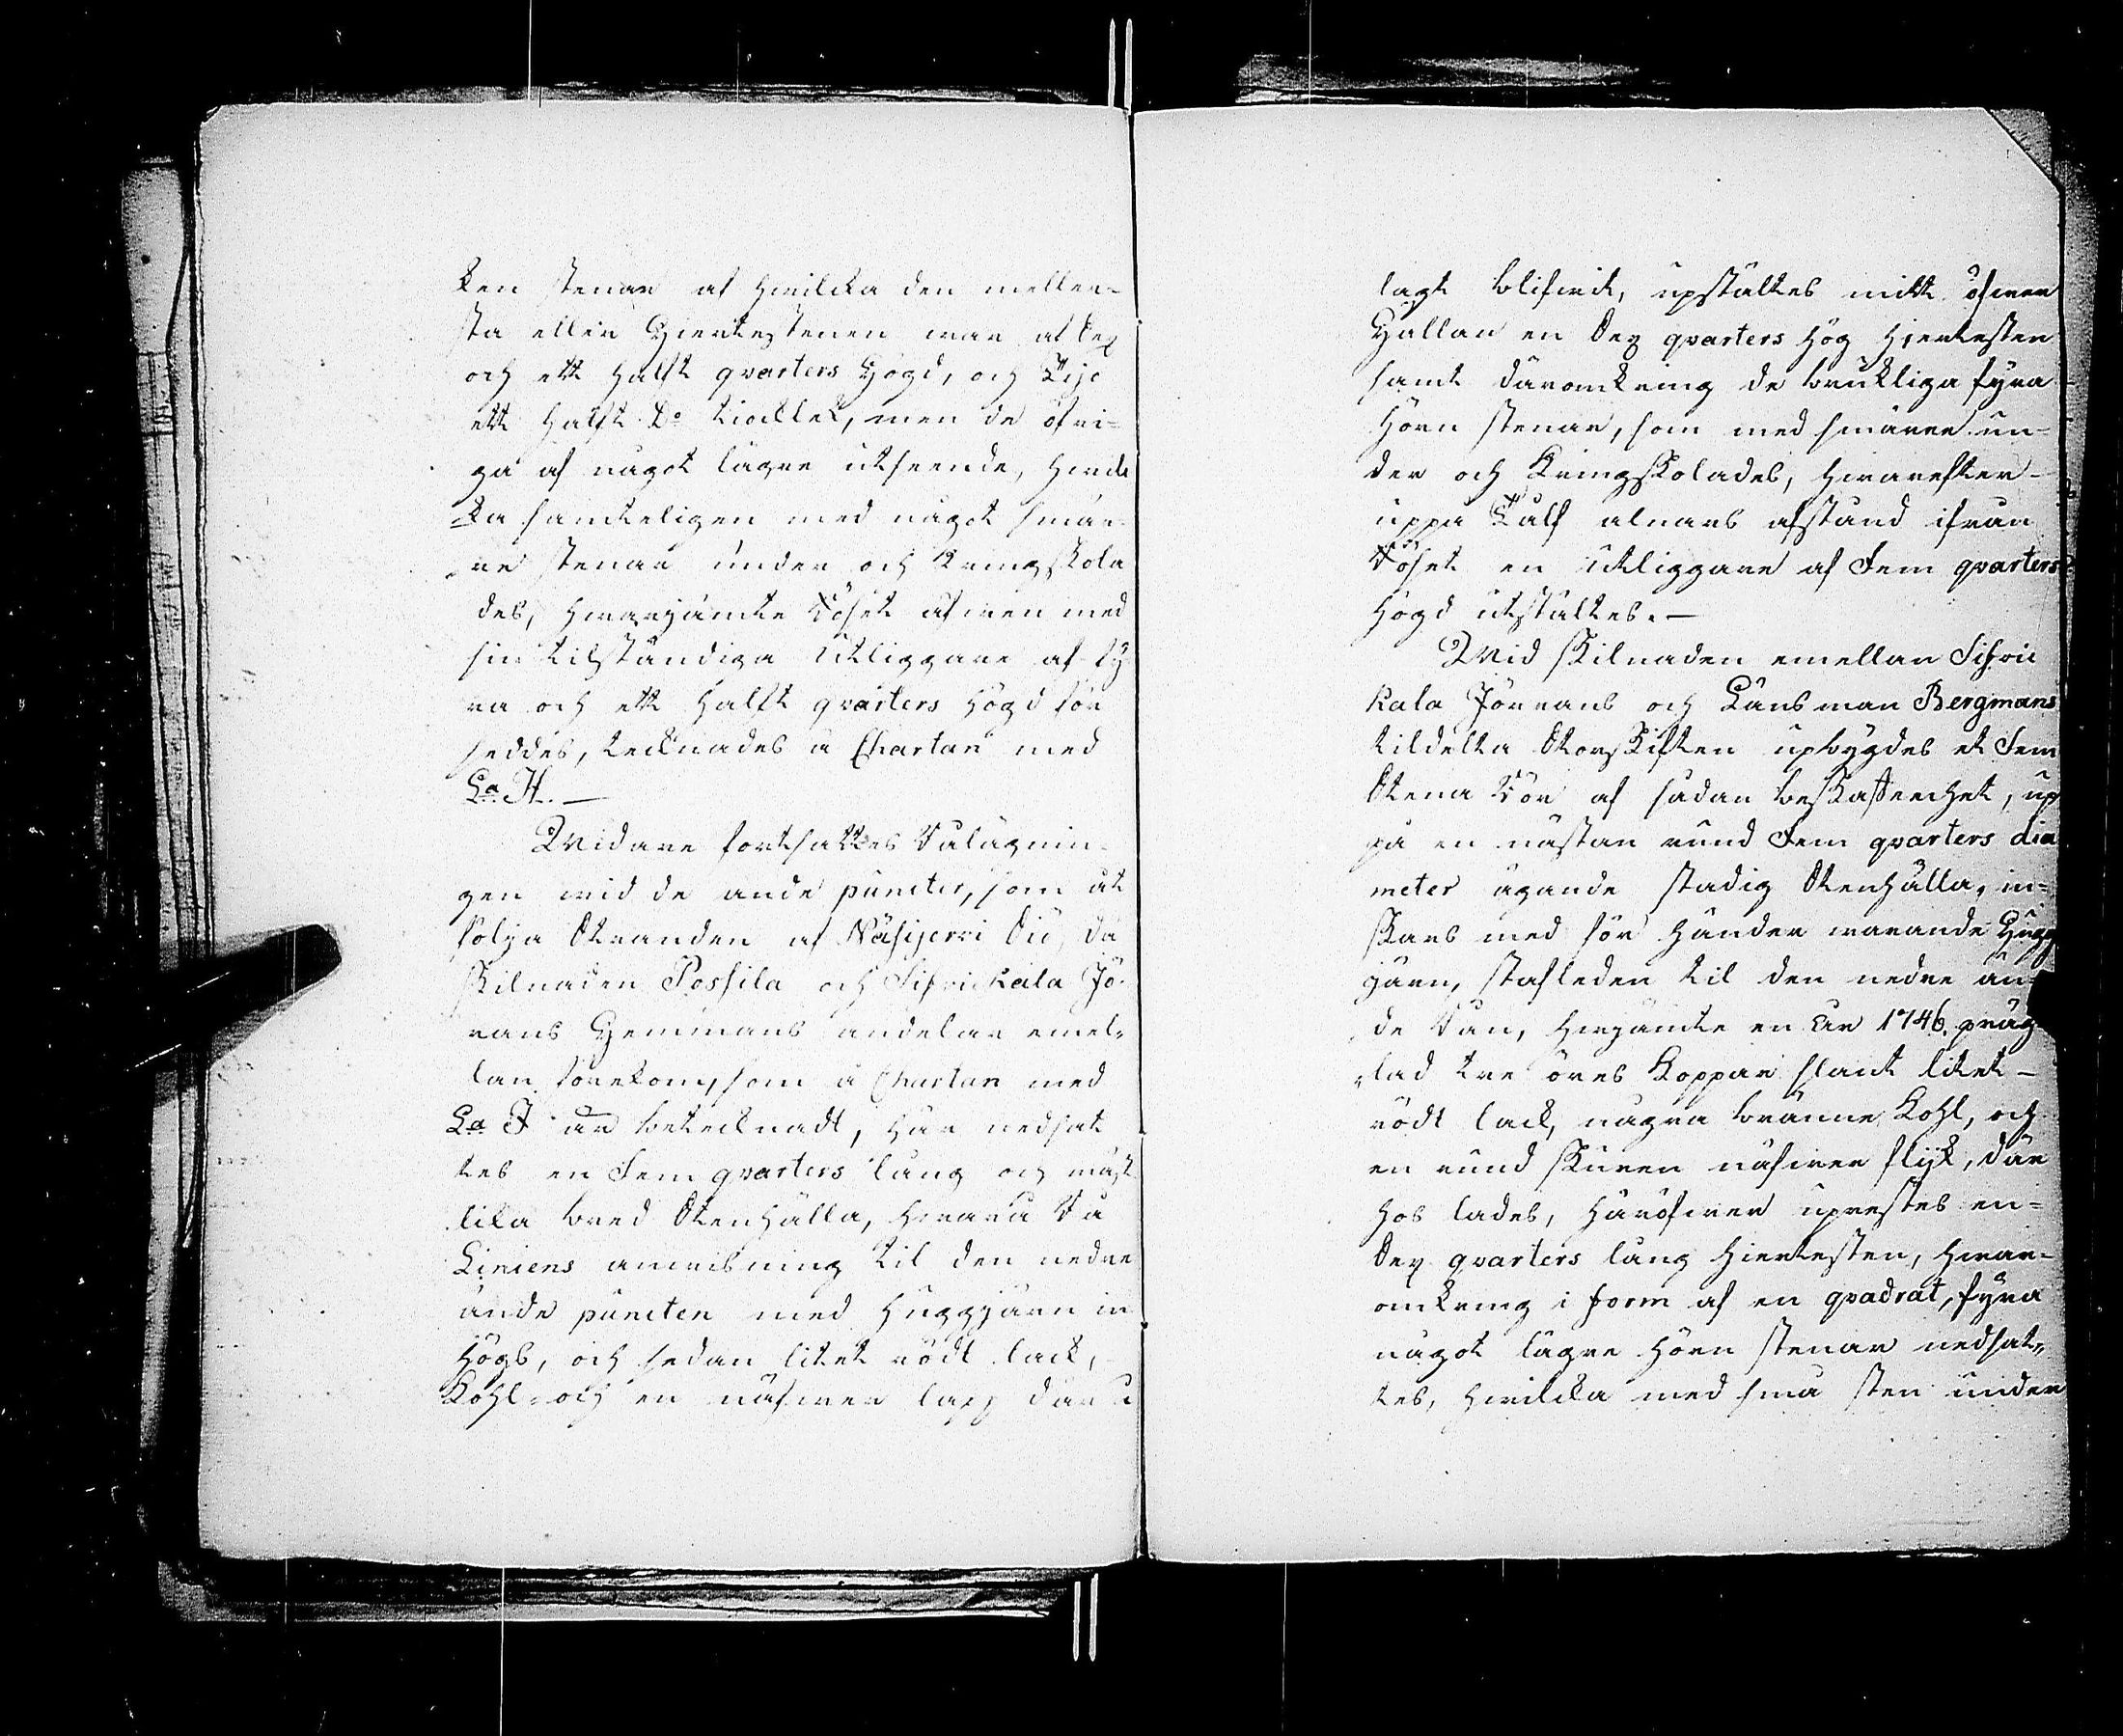 ken stenar af hwilcka den meller-
sta eller Hiertestenen war af Sex
och ett halft qvarters Högd, och Tije
ett halft D:o tiocklek, men de öfri-
ga af något lägre utseende, hwilc
ka samteligen med något smär-
re stenar under och kringskola
des, hwarjämte Röset äfwen med
sin tilständiga Utliggare af fy
ra och ett halft qvarters högd för
seddes, tecknades å Chartan med
L:a H. —
Widare fortsattes Rålägnin-
gen wid de ände puncter, som åt
följa Stranden af Näsijerwi Siö, då
skilnaden Possila och Sifwickala Jö-
rans Hemmans andelar emel-
lan förekom, som å Chartan med
L:a I är betecknadt, här nedsat
tes en Fem qvarters lång och mäst
lika bred Stenhälla, hwarå Rå
Liniens anwisning til den nedre
ände puncten med Huggjärn in
höggs, och sedan litet rödt lack,
Kohl och en näfwer lapp där å
lagt blifwit, upstältes mitt öfwer
Hällan en Sex qvarters hög hjertesten
samt däromkring de brukliga fyra
Hörn stenar, som med smärre un-
der och kringskolades, hwarefter
uppå Tolf alnars afstånd ifrån
Röset en Utliggare af Fem qvarters
högd utstältes. —
Wid skilnaden emellan Sifwic
kala Jörrans och Länsman Bergmans
tildelta Storskiften upbygdes et Fem
Stena Rör af sådan beskaffenhet, up
på en nästan rund Fem qvarters dia
meter ägande stadig Stenhälla, in-
skars med för händer warande Hugg
järn, stafleden til den nedre än-
de Rån, hwarjämte en År 1746. präg
lad tre öres Koppar slant litet
rödt lack, några bränne Kohl, och
en rund skuren näfwer flijk, där
hos lades, häröfwer uprestes en
Sex qvarters lång hiertesten, hwar-
omkring i form af en qvadrat, fyra
något lägre hörn stenar nedsat-
tes, hwilcka med små sten under